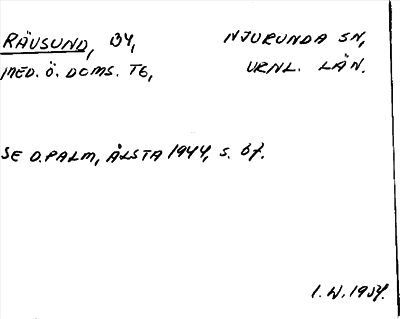 RÄVSUND, BY, NJURUNDA SN,
MED. Ö. DOMS. TG, VRNL. LÄN.
SE D. PALM, ÄLSTA 1944, S. 67.
I. W. 1957.